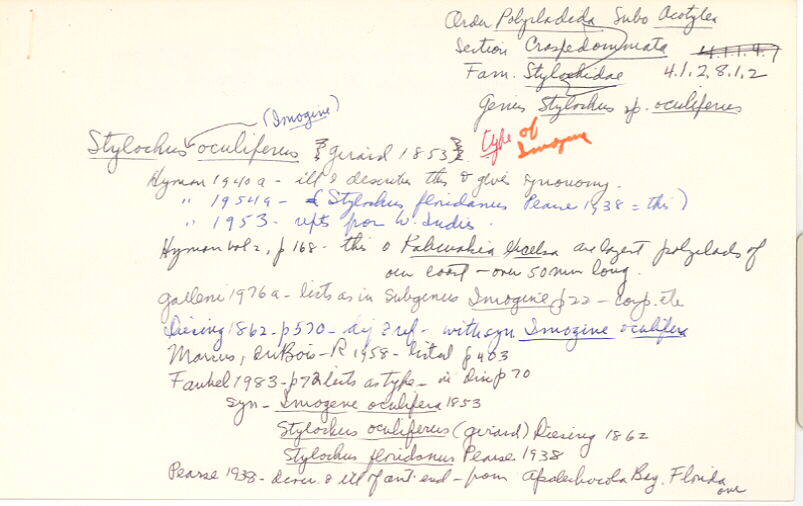 Order Polycladida Subo Acotylea
Section Craspedommata 4.1.1.4.7
Fam. Stylochidae 4.1.2.8.1.2
Genus Stylochus sp. oculiferus
(Imogine)
Stylochus oculiferus {Girard 1853}. type of Imogine
Hyman 1940a - ill & describes this & gives synonomy.
" 1954a - (Stylochus floridanus Pearse 1938 = this)
" 1953 - repts from W. Indies.
Hyman vol 2, p 168 - this & Kaburakia excelsa are largest polyclads of
our coast - over 50 mm long.
Galleni 1976a - lists as in subgenus Imogine p 22 - comp. etc
Diesing 1862 - p 570 - dif ? ref - with syn Imogine oculifera
Marcus, DuBois-R 1958 - listed p 403
Faubel 1983 - p 72 lists as type - in dis p 70
syn - Imogene oculifera 1853
Stylochus oculiferus (Girard) Diesing 1862
Stylochus floridanus Pearse 1938
Pearse 1938 - descr. & ill of ant. end - from Apalachocola Bay, Florida
over